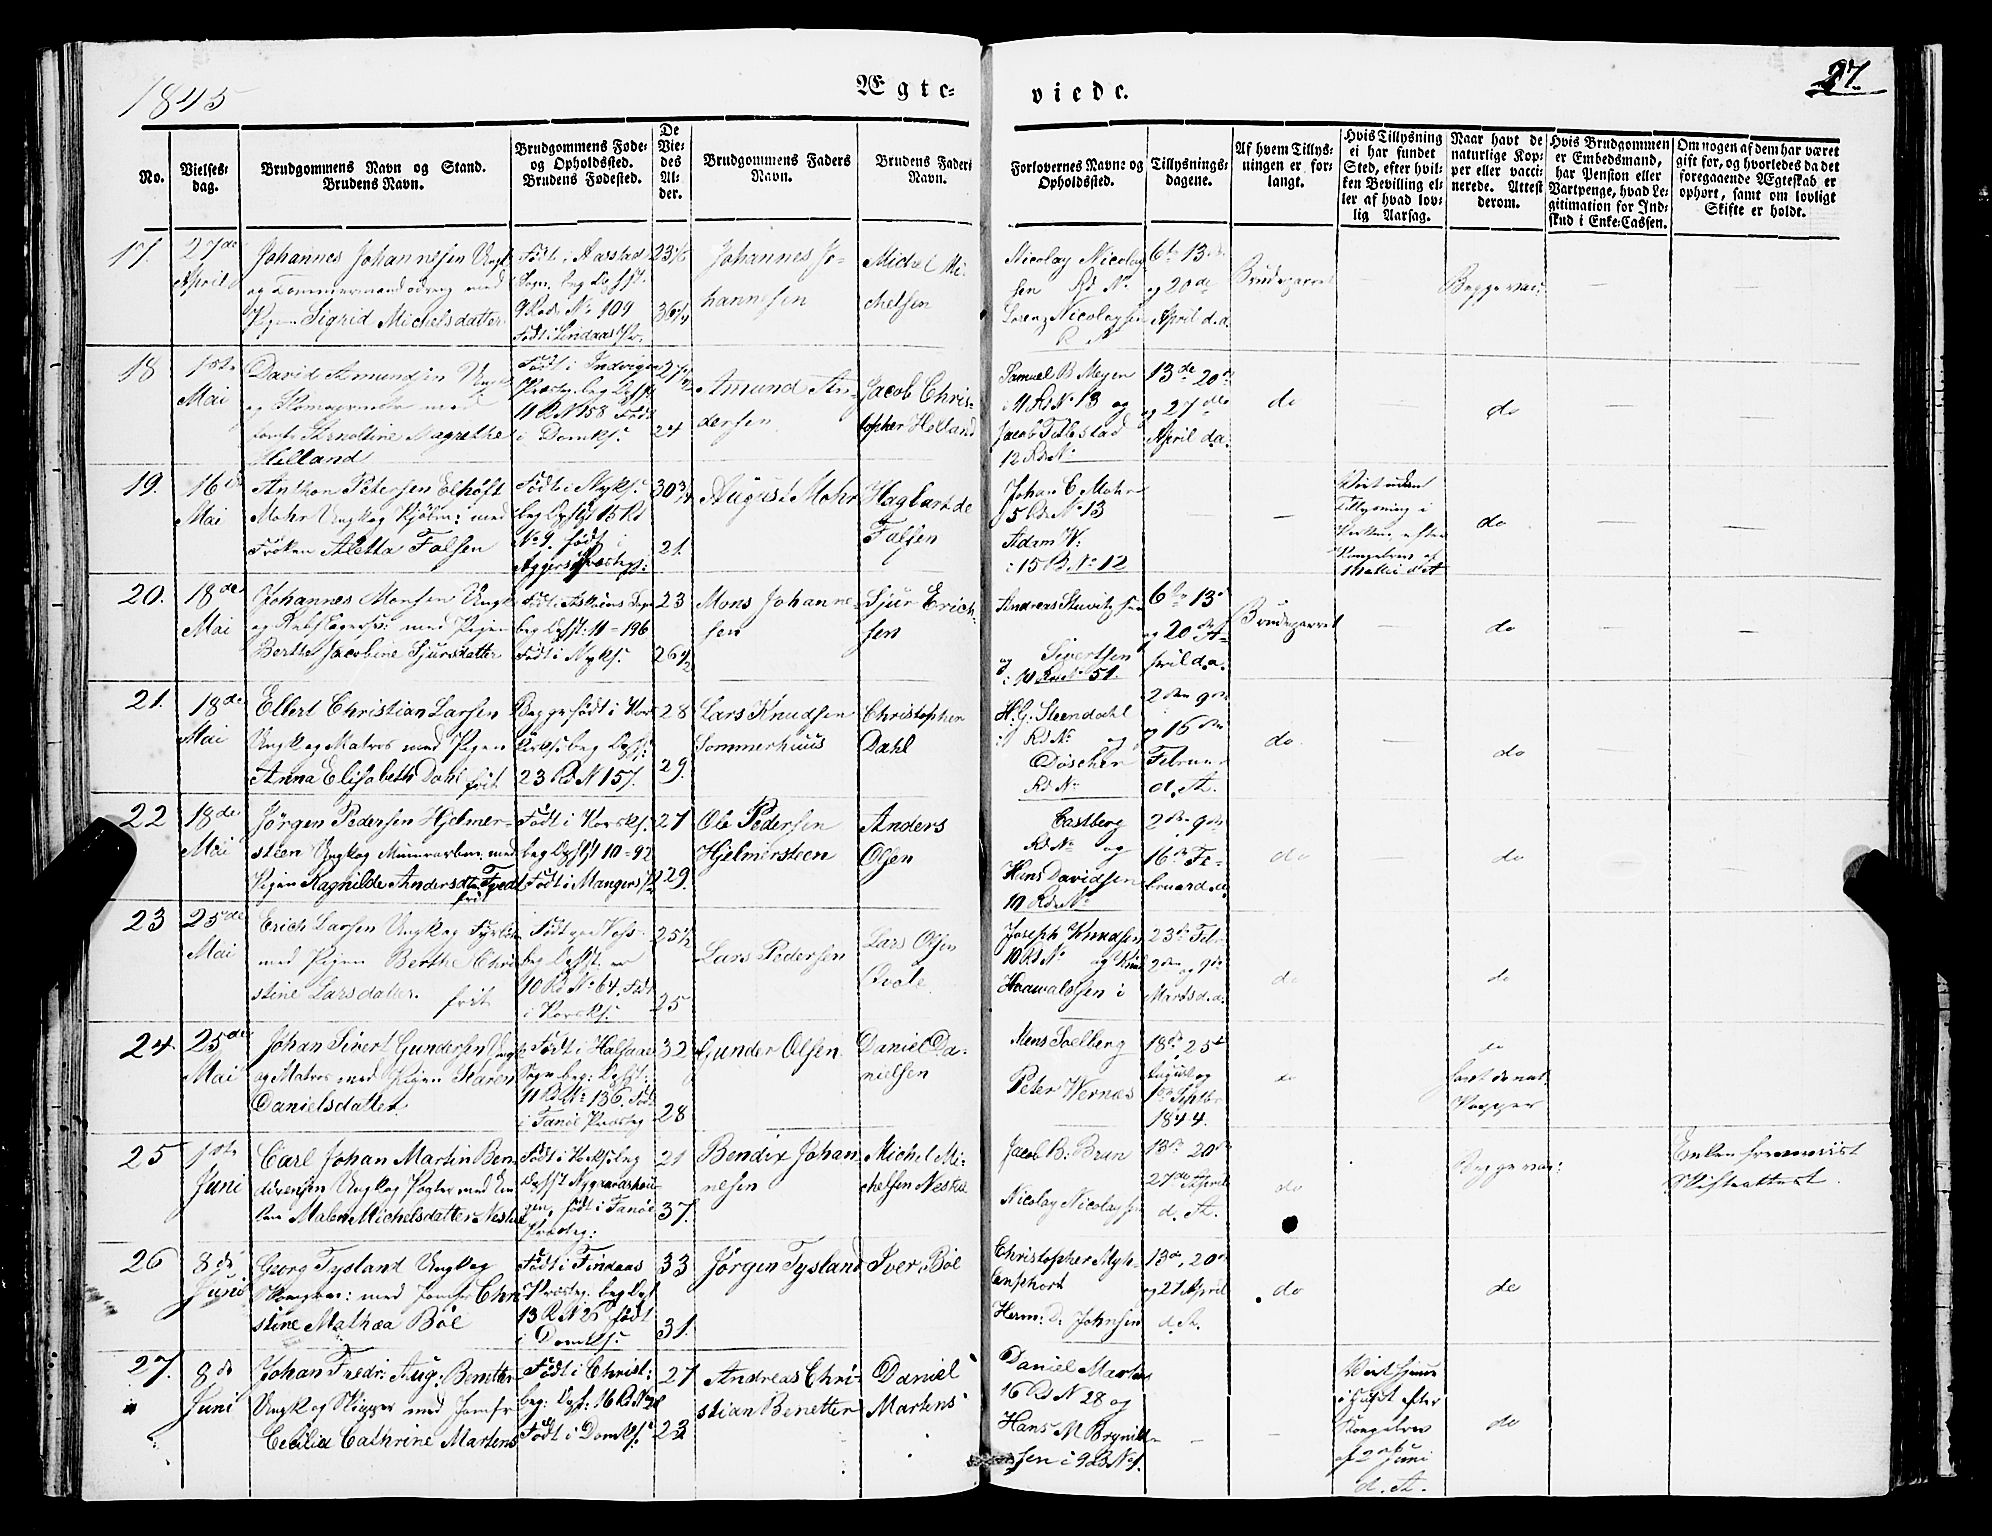 1845
Ægte-
viede.
27.
No.
Vielses-
dag.
Brudgommens Navn og Stand.
Brudens Navn.
Brudgommens Føde-
og Opholdssted.
Brudens Fødested.
De
Vie-
des
Al-
der.
Brudgommens Faders
Navn.
Brudens Faders
Navn.
Forlovernes Navne og
Opholdssted.
Tillysnings-
dagene.
Af hvem Tillys-
ningen er for-
langt.
Hvis Tillysning
ei har fundet
Sted, efter hvil-
ken Bevilling el-
ler af hvad lov-
lig Aarsag.
Naar havt de
naturlige Kop-
per eller vacci-
nerede. Attest
derom.
Hvis Brudgommen
er Embedsmand,
har Pension eller
Vartpenge, hvad Le-
gitimation for Ind-
skud i Enke-Cassen.
Om nogen af dem har været
gift før, og hvorledes da det
foregaaende Ægteskab er
ophørt, samt om lovligt
Skifte er holdt.
17.
27de
April
Johannes Johannesen Ungk
og Tømmermandsdreng med
Pigen Sigrid Michelsdatter
Født i Aarstad
Sogn. beg Opsst.
9 Rode No 109
Født i Lindaas Pr.
Johannes Jo-
hannesen
Michel Mi-
chelsen
Nicolay Nicolay
sen Rd No
Lorenz Nicolaysen
6te 13de
og 20de
April d.a.
Brudeparret
Begge vac:
18
1ste
Mai
David Amundsen Ungk
med
Jomfr Arnoltine Magrethe
Helland
Født i Indvigen
Præstg. beg Opsst
11 R N 158 Født
i Domks.
24
Amund An-
dersen
Jacob Chris-
topher Helland
Samuel B Meyer
i 11 Rd No 13 og
Jacob Tillestad
12 Rd No
13de 20de
og 27de
April d.a.
do
do
19.
16de
Mai
Anthon Petersen Elhøft
Mohr Ungk og Kjøbm: med
Frøken Aletta Falsen
Født i Nyks.
beg Opsst 15 Rd
No 9. født i
Aggers Præstegj:
30 3/4
21.
August Mohr
Hagbart de
Falsen
Johan C Mohr
5 Rd No 13
Adam W:
: 15 R. No 12
Viet uden
Tillysning i
Kirken efter
Kongebrev af
do
20.
18de
Mai
Johannes Monsen Ungk
og Rebslagersv: med Pigen
Berthe Jacobine Sjursdatter
Født i Askøens Sogn
beg Opsst: 11 - 196
Født i Nyks.
23
26 1/2
Mons Johanne-
sen
Sjur Erich-
sen
Andreas
og Sivertsen
6te 13de
og 20de A-
pril d.a.
Brudeparret
do
21.
18de
Mai
Ellert Christian Larsen
Ungk og Matros med Pigen
Anna Elisabeth Dahl frit
Begge født i Kors
kirks: beg Opst:
23 Rd N 157.
28
29.
Lars Knudsen
Sommerhuus
Christopher
Dahl
H. G. Steendahl
i Rd No og
Døscher
Rd No
2den 9de
og 16de
Februar
d. A.
do.
do
22
18de
Mai
Jørgen Pedersen Hjelmer-
steen Ungk og Muurarbm. med
Pigen Ragnilde Andersdtr Tvedt
frit
Født i Korsks.
beg Opsst 10-92
Født i Mangers P.
27
29.
Ole Pedersen
Hjelmersteen
Anders
Olsen
Castberg
Rd No og
Hans Davidsen
10 Rd No
2den 9de
16de Fe-
bruar d.a.
do
do
23
25de
Mai
Erich Larsen Ungk og
med Pigen Berthe Chri
stine Larsdatter. frit
Født paa Voss
beg Opsst. er
10 Rd No 64. Født
i Korsks.
25 1/2
25
Lars Pedersen
Lars Olsen
Qvale
Joseph Knudsen
10 Rd No og Knud
Haavaldsen i
23de Febr
2den og 9de
Marts d.a.
do
do
24.
25de
Mai
Johan Sivert Gundersen Ungk
og Matros med Pigen Karen
Danielsdatter
Født i Halsaa
Sogn beg: Opst:
11 R No 136. Født
i Fanøe Præsteg
32
28
Gunder Olsen
Daniel Da-
nielsen
Mons Soelberg
Peter Wernæs
18de, 25de
August og
1ste Septbr
1844.
do
do
havt de nat.
Kopper
25
1ste
Juni
Carl Johan Martin Ben-
dixensen Ungk og Pogter med En
ken Malene Michelsdatter Nestøe
Født i Korks. beg
Opsst Nygaardshou
gen, født i Fanøe
Præsteg:
21
37.
Bendix Johan
nesen
Michel Mi-
chelsen Nestøe
Jacob B. Brun
Nicolay Nicolaysen
13de 20de
27de April
d. A.
do
Begge vac:
Enken fremviist
Skifteattest.
26
8de
Juni
Georg Tysland Ungk og
med Jomfr Chri
stine Mathea Böe
Født i Findaas
Præsteg. beg Opst
13 R N 26 født
i Domks.
33
31.
Jørgen Tysland
Iver Böe
Christopher Myh-
lenphort
Herm: D. Johnsen
13de, 20de
og 27 April
d. A.
do
do
27.
8de
Juni
Johan Fredr: Aug: Benetter
Ungk og Skipper med Jomfr
Cecilia Cathrine Martens
Født i Christ:
beg: Opst: 16 R No 28
Født i Domks:
27
23
Andreas Chri-
stian Benetter
Daniel
Martens
Daniel Martens
16 Rd N 28 og
Hans M Brynild-
sen i 9 R No 1.
Viet hjemme
i Huset efter
Kongebrev
af 2 Juni
d. A.
do